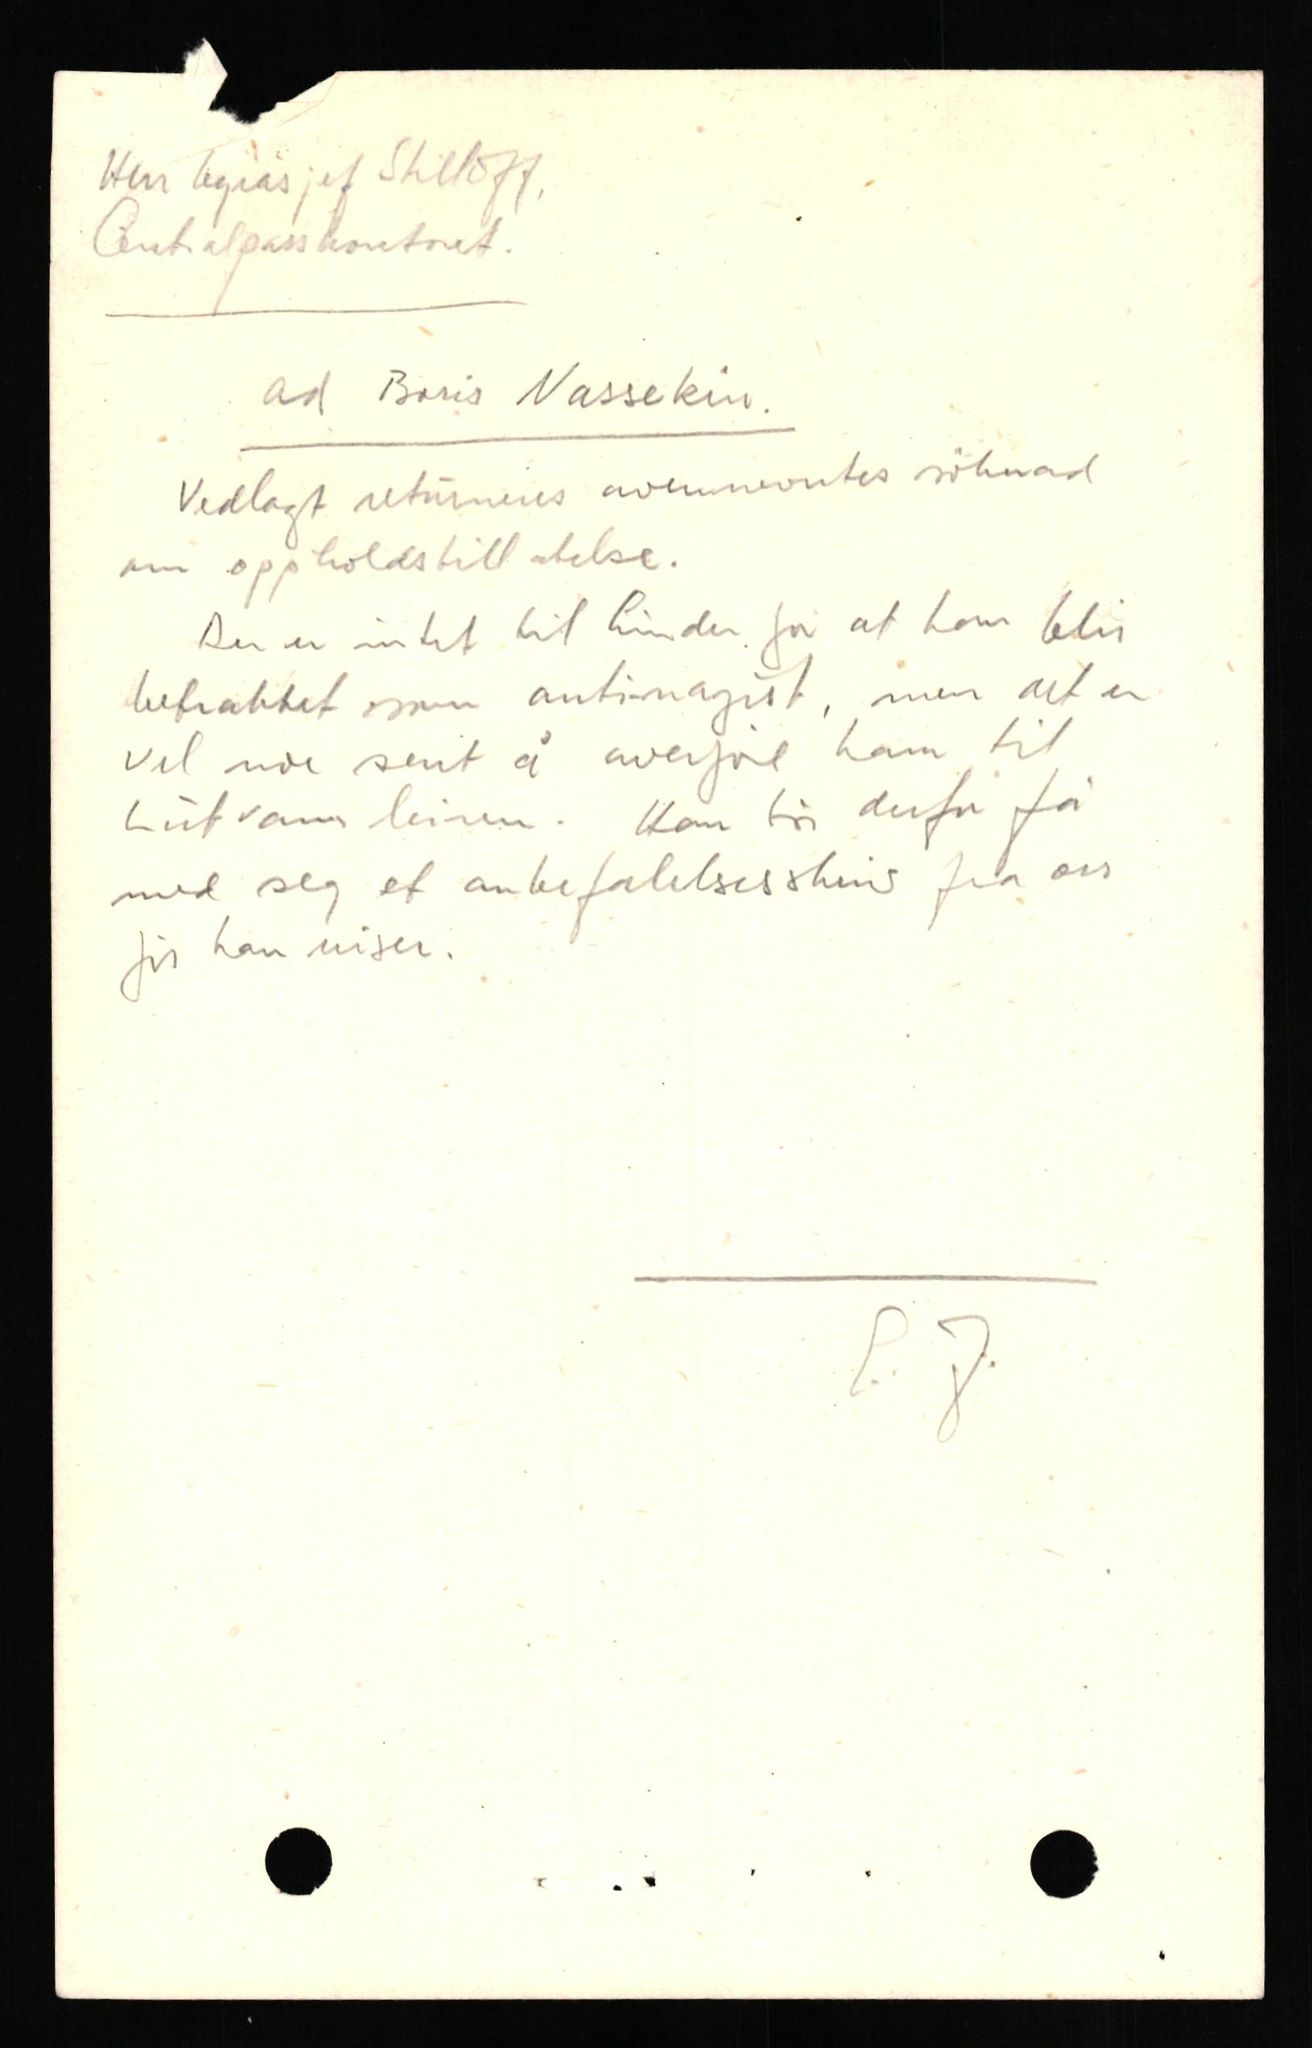 Herr byråsjef Stiltoff,
Centralpasskontoret.
ad Boris Nassekin.
Vedlagt returneres ovennevntes söknad
om oppholdstillatelse.
Der er intet til hinder for at han blir
betraktet som antinazist, men det er
vel noe sent å overföre ham til
leiren. Han bör derfor få
med seg et anbefalelsesskriv fra oss
för han reiser.
E. J.